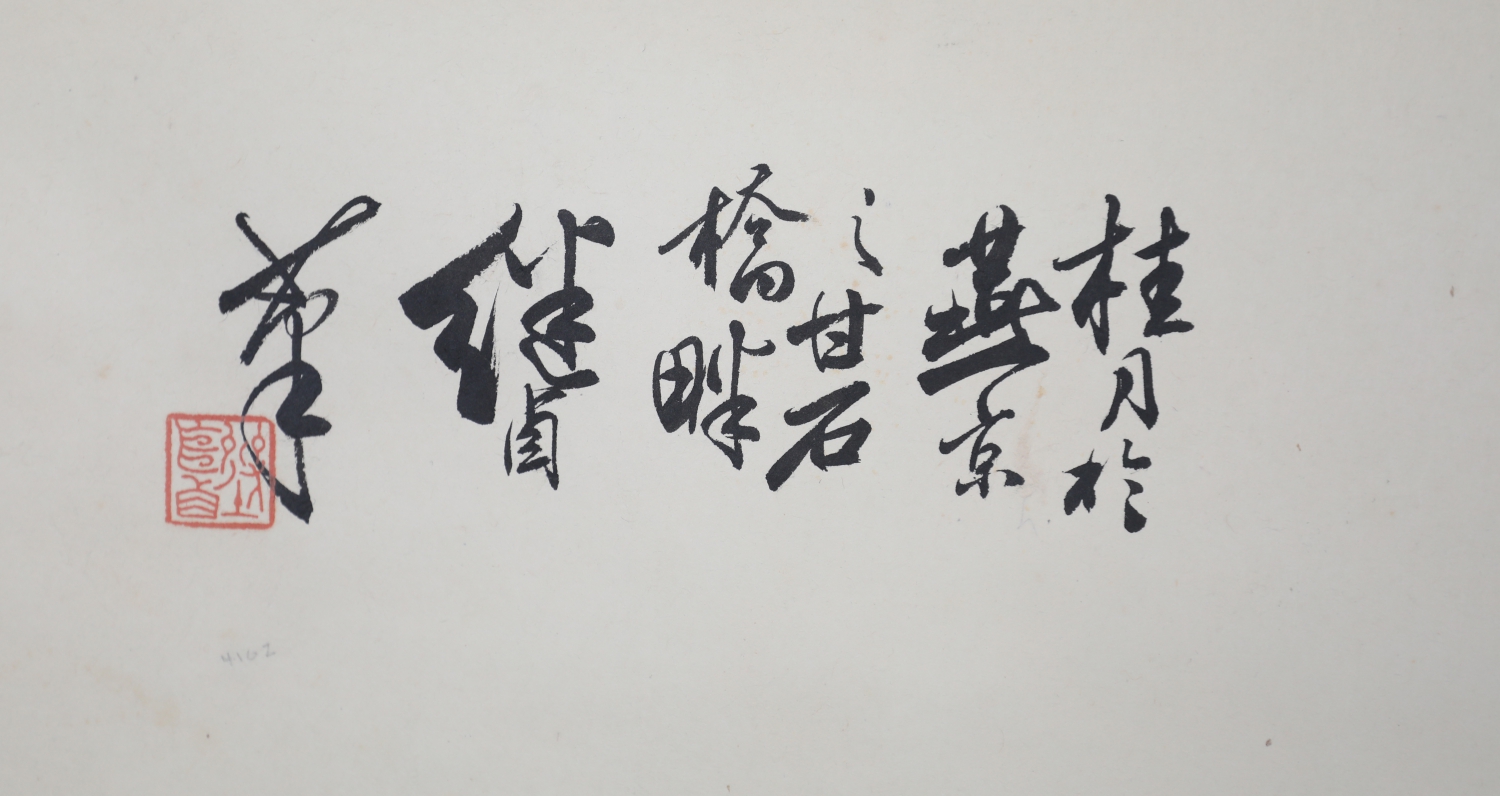 桂月於
燕京
之甘石
橋畔
继貞
筆
4162